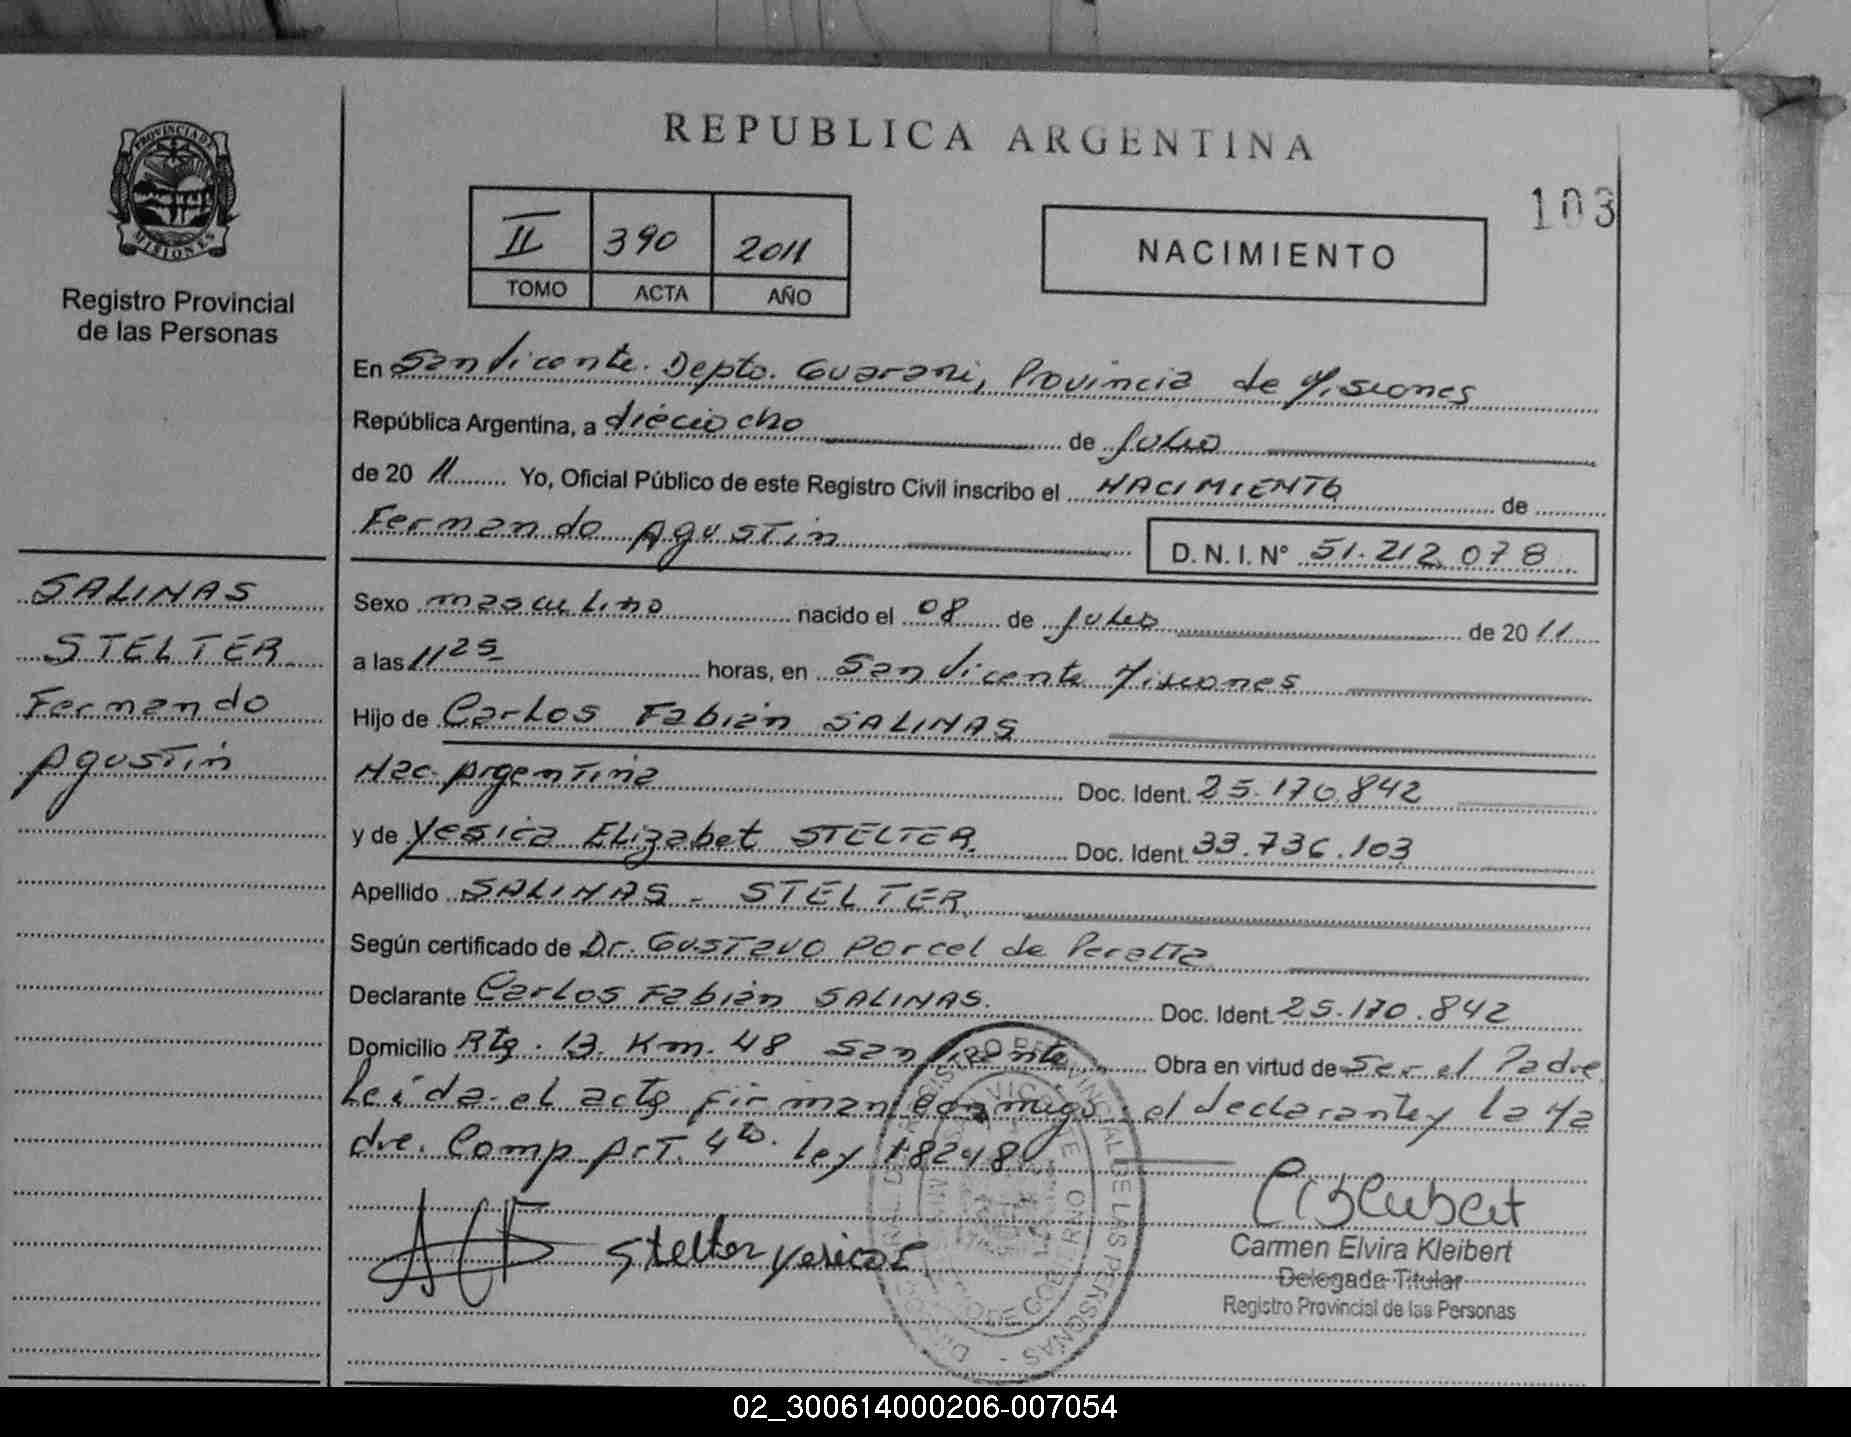 REPUBLICA ARGENTINA
103
PROVINCIA D
MISIONES
Registro Provincial
de las Personas
II 390 2011
TOMO ACTA AÑO
NACIMIENTO
En San Vicente. Depto. Guarani, Provincia de Misiones
República Argentina, a dieciocho de Julio
de 20 11 Yo, Oficial Público de este Registro Civil inscribo el NACIMIENTO de
Fernando Agustin D.N.I. N° 51.212.078
SALINAS
STELTER
Fernando
Agustin
Sexo masculino nacido el 08 de Julio de 20 11
a las 11 25 horas, en San Vicente Misiones
Hijo de Carlos Fabián SALINAS
Nac. Argentina Doc. Ident. 25.170.842
y de Yesica Elizabet STELTER. Doc. Ident. 33.736.103
Apellido SALINAS - STELTER
Según certificado de Dr. Gustavo Porcel de Peralta
Declarante Carlos Fabián SALINAS. Doc. Ident. 25.170.842
Domicilio Rta. 13. Km. 48 San Vicente Obra en virtud de Ser el Padre
Leida el acta firman conmigo el declarante y la Ma
dre. Comp Art. 4to. ley 18248
Stelter Yesica E
Carmen Elvira Kleibert
Delegada Titular
Registro Provincial de las Personas
02_300614000206-007054